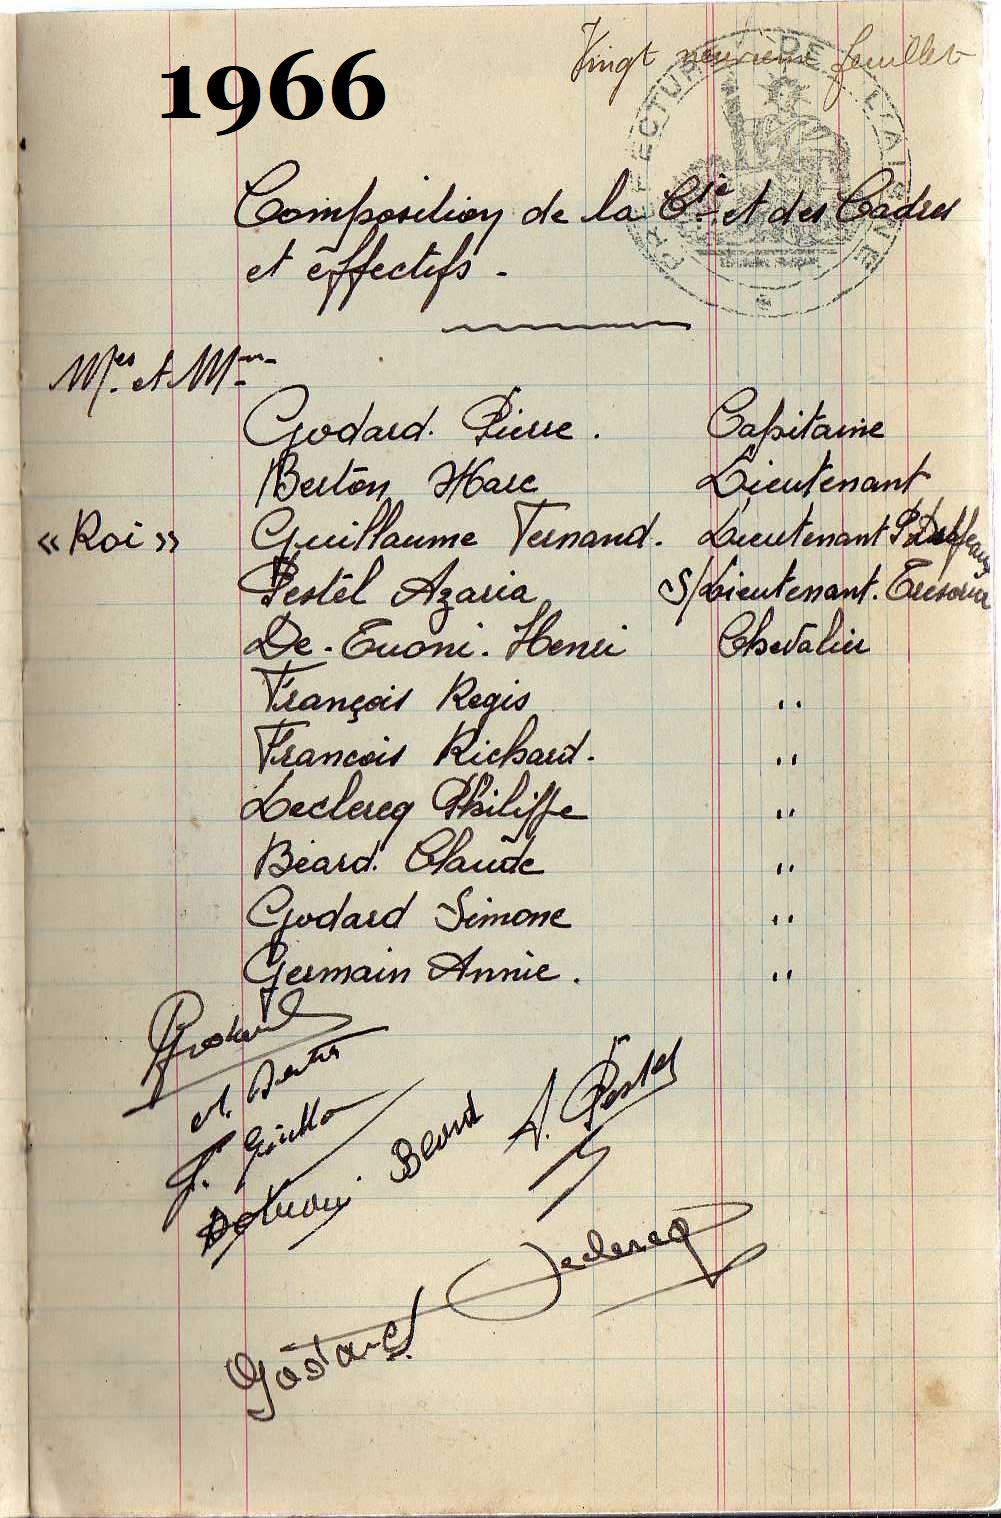 1966
Vingt neuvième feuillet
PRÉFECTURE DE L'AISNE
Composition de la Cie et des Cadres
et effectifs -
Mes et Mm
Godard. Pierre. Capitaine
Berton Marc Lieutenant
« Roi » Guillaume Fernand. Lieutenant P. Drapeaux
Pestel Azaria S/Lieutenant. Trésorier
De. Tuoni. Henri Chevalier
François Regis "
Francois Richard. "
Leclercq Philippe "
Béard. Claude "
Godard Simone "
Germain Annie. "
Godard
Béard A. Pestel
Leclercq
Godard